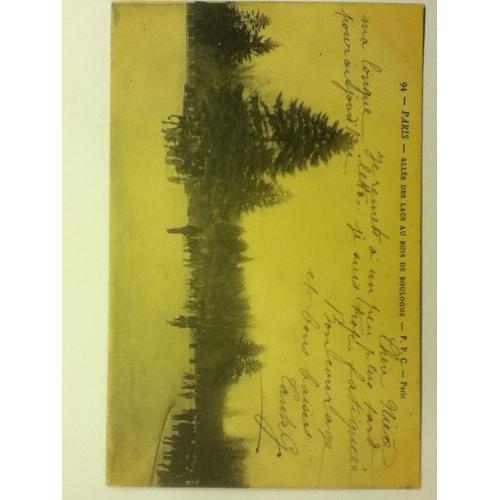 94 — PARIS — ALLÉE DES LACS AU BOIS DE BOULOGNE — P. P. C. — Paris
Chère
Je remets à un peu plus tard
ma longue lettre, je suis trop fatiguée
pour aujourd'hui.
Bon courage
et bons baisers.